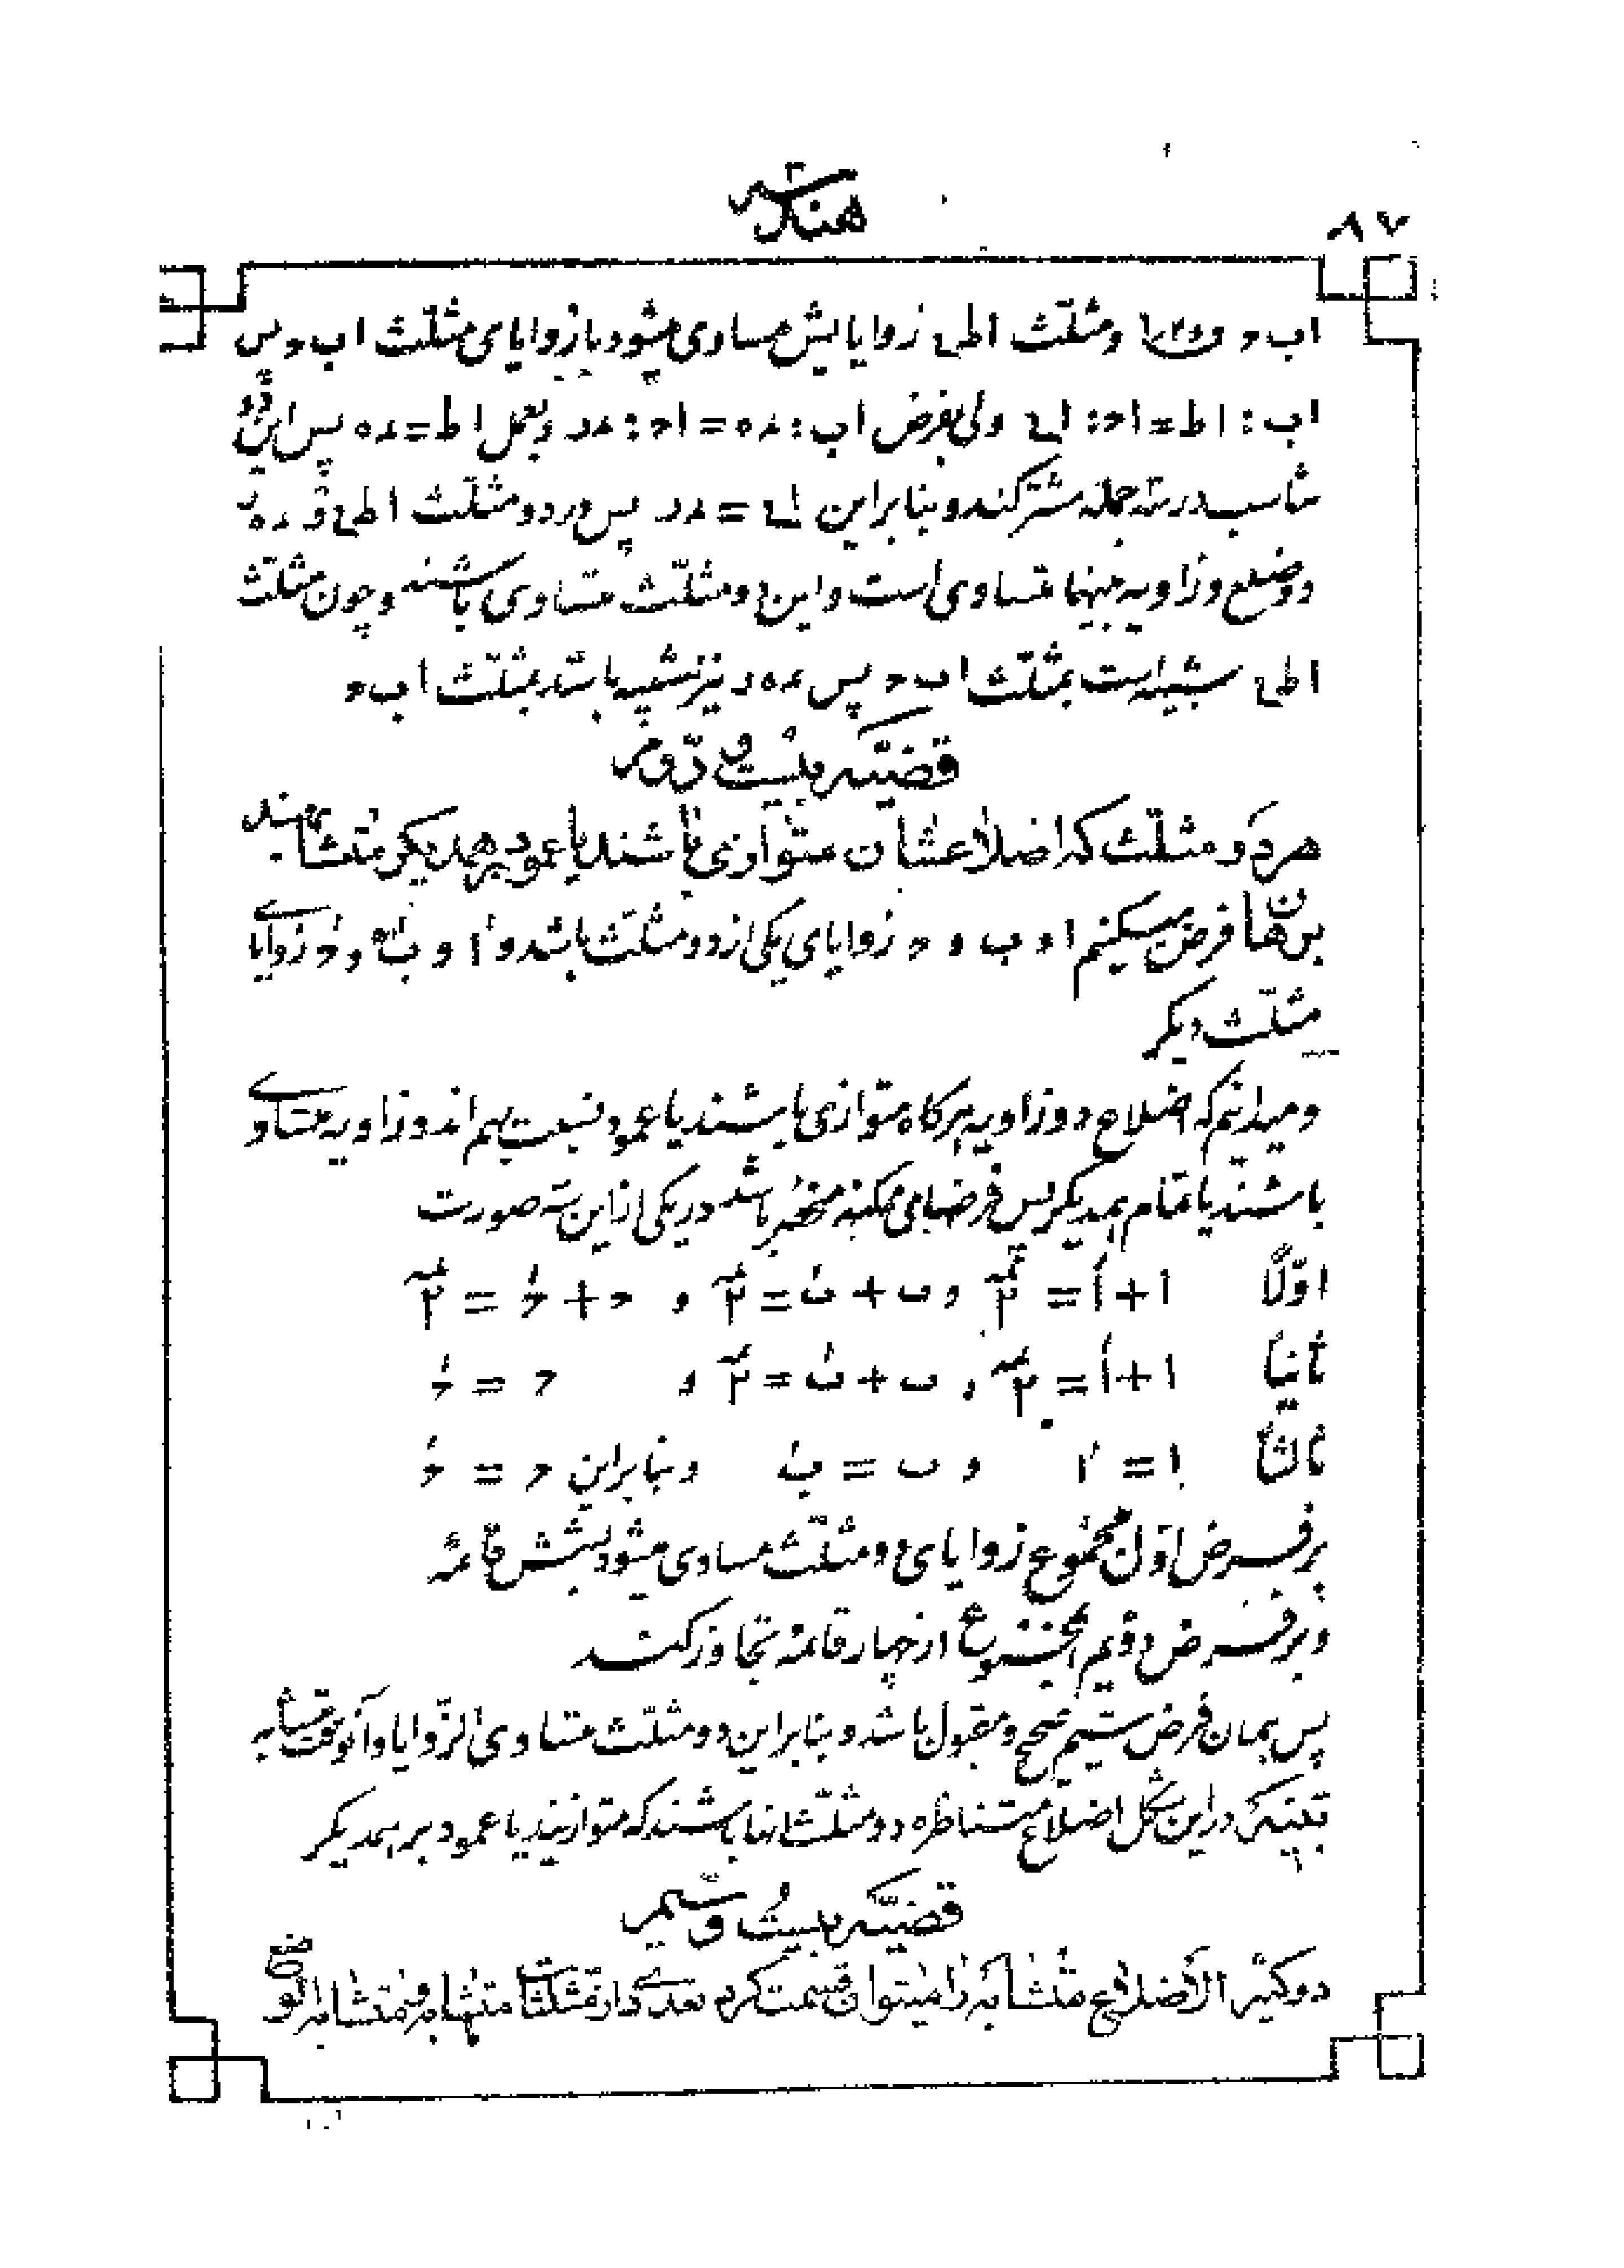 هندسه
۸۷
اب‌ح و ومثلّث اطی زوایایش مساوی میشود با زوایای مثلّث اب‌ح پس
اب : اط = اح : ای ولی بفرض اب : ده = اح : در وبعمل اط = ده پس این دو
تناسب در سه جمله مشترکند و بنابراین ای = در پس در دو مثلّث اطی و ده‌ر
دو ضلع و زاویه بینهما متساوی است و این دو مثلّث متساوی باشند و چون مثلّث
اطی شبیه است بمثلّث اب‌ح پس ده‌ر نیز شبیه باشد بمثلّث اب‌ح
قضیّه بیست و دوّم
هر دو مثلّث که اضلاعشان متوازی باشند یا عمود بر همدیگر متشابهند
برهان فرض میکنیم ا و ب و ح زوایای یکی از دو مثلّث باشد و اَ و بَ و حَ زوایای
مثلّث دیگر
و میدانیم که اضلاع دو زاویه هرگاه متوازی باشند یا عمود نسبت بهم اندو زاویه متساوی
باشند یا تمام همدیگر پس فرضهای ممکنه منحصر باشد در یکی از این سه صورت
اوّلاً ا + اَ = ۲ قمه و ب + بَ = ۲ قمه و ح + حَ = ۲ قمه
ثانیاً ا + اَ = ۲ قمه و ب + بَ = ۲ قمه و ح = حَ
ثالثاً ا = اَ و ب = بَ و بنابراین ح = حَ
بر فرض اوّل مجموع زوایای دو مثلّث مساوی میشود بشش قائمه
و بر فرض دویم مجموع از چهار قائمه تجاوز کند
پس همان فرض سیم صحیح و مقبول باشد و بنابراین دو مثلّث متساوی الزّوایا و آنوقت متشابه
تبنیه در این شکل اضلاع متناظره دو مثلّث آنها باشند که متوازیند یا عمود بر همدیگر
قضیّه بیست و سیم
دو کثیر الاضلاع متشابه را میتوان قسمت کرد بعدّه‌ای از مثلّثات متشابه و متشابه الوضع